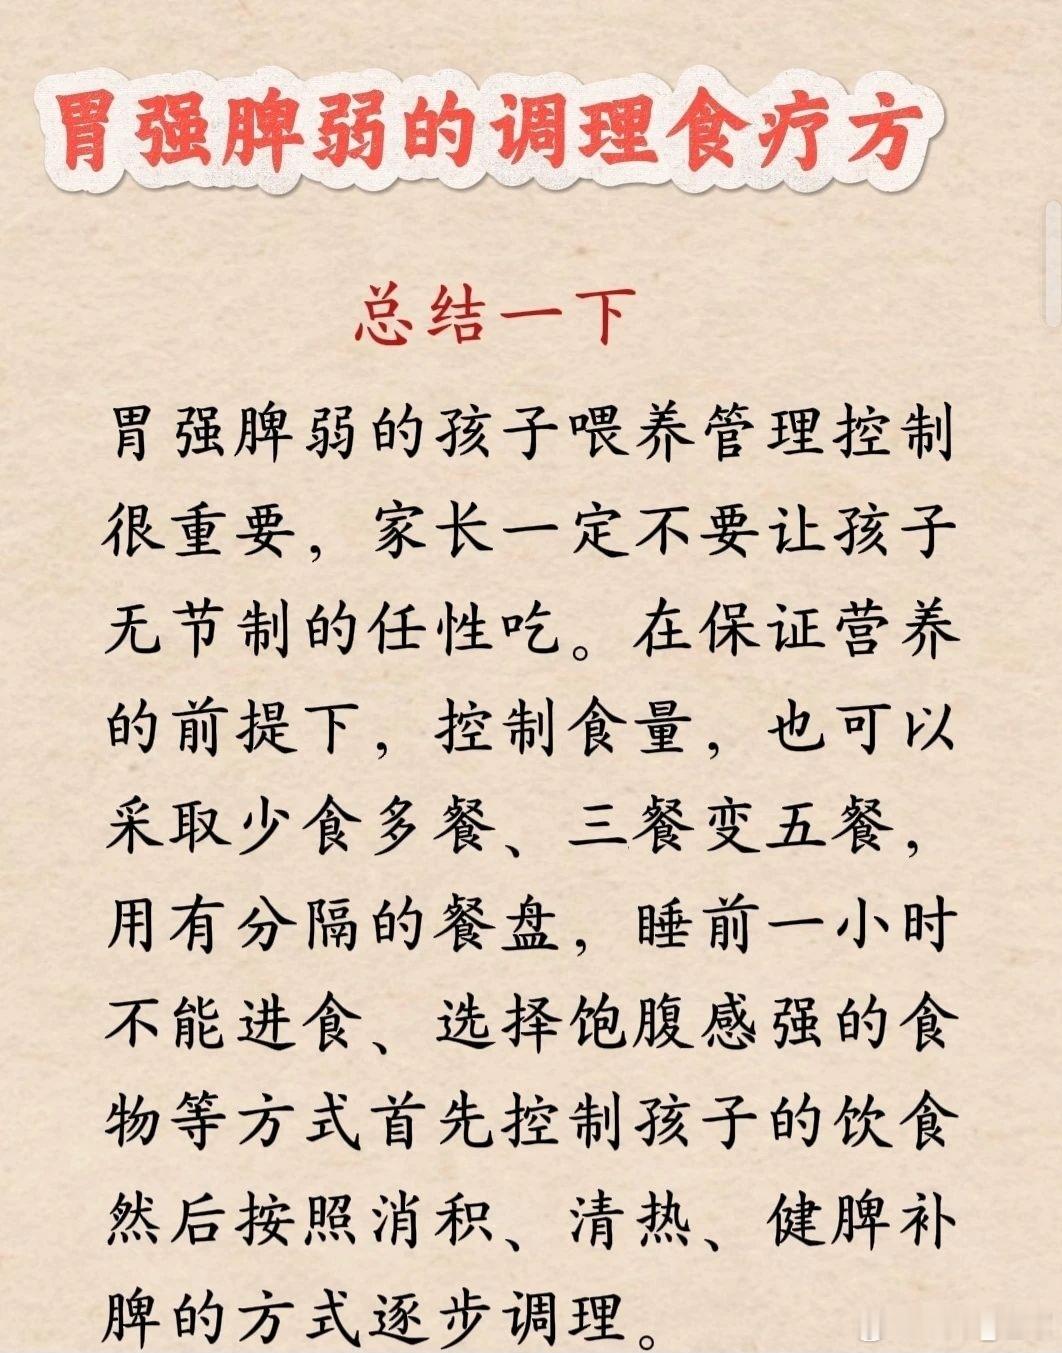 胃强脾弱的调理食疗方
总结一下
胃强脾弱的孩子喂养管理控制
很重要，家长一定不要让孩子
无节制的任性吃。在保证营养
的前提下，控制食量，也可以
采取少食多餐、三餐变五餐，
用有分隔的餐盘，睡前一小时
不能进食、选择饱腹感强的食
物等方式首先控制孩子的饮食
然后按照消积、清热、健脾补
脾的方式逐步调理。